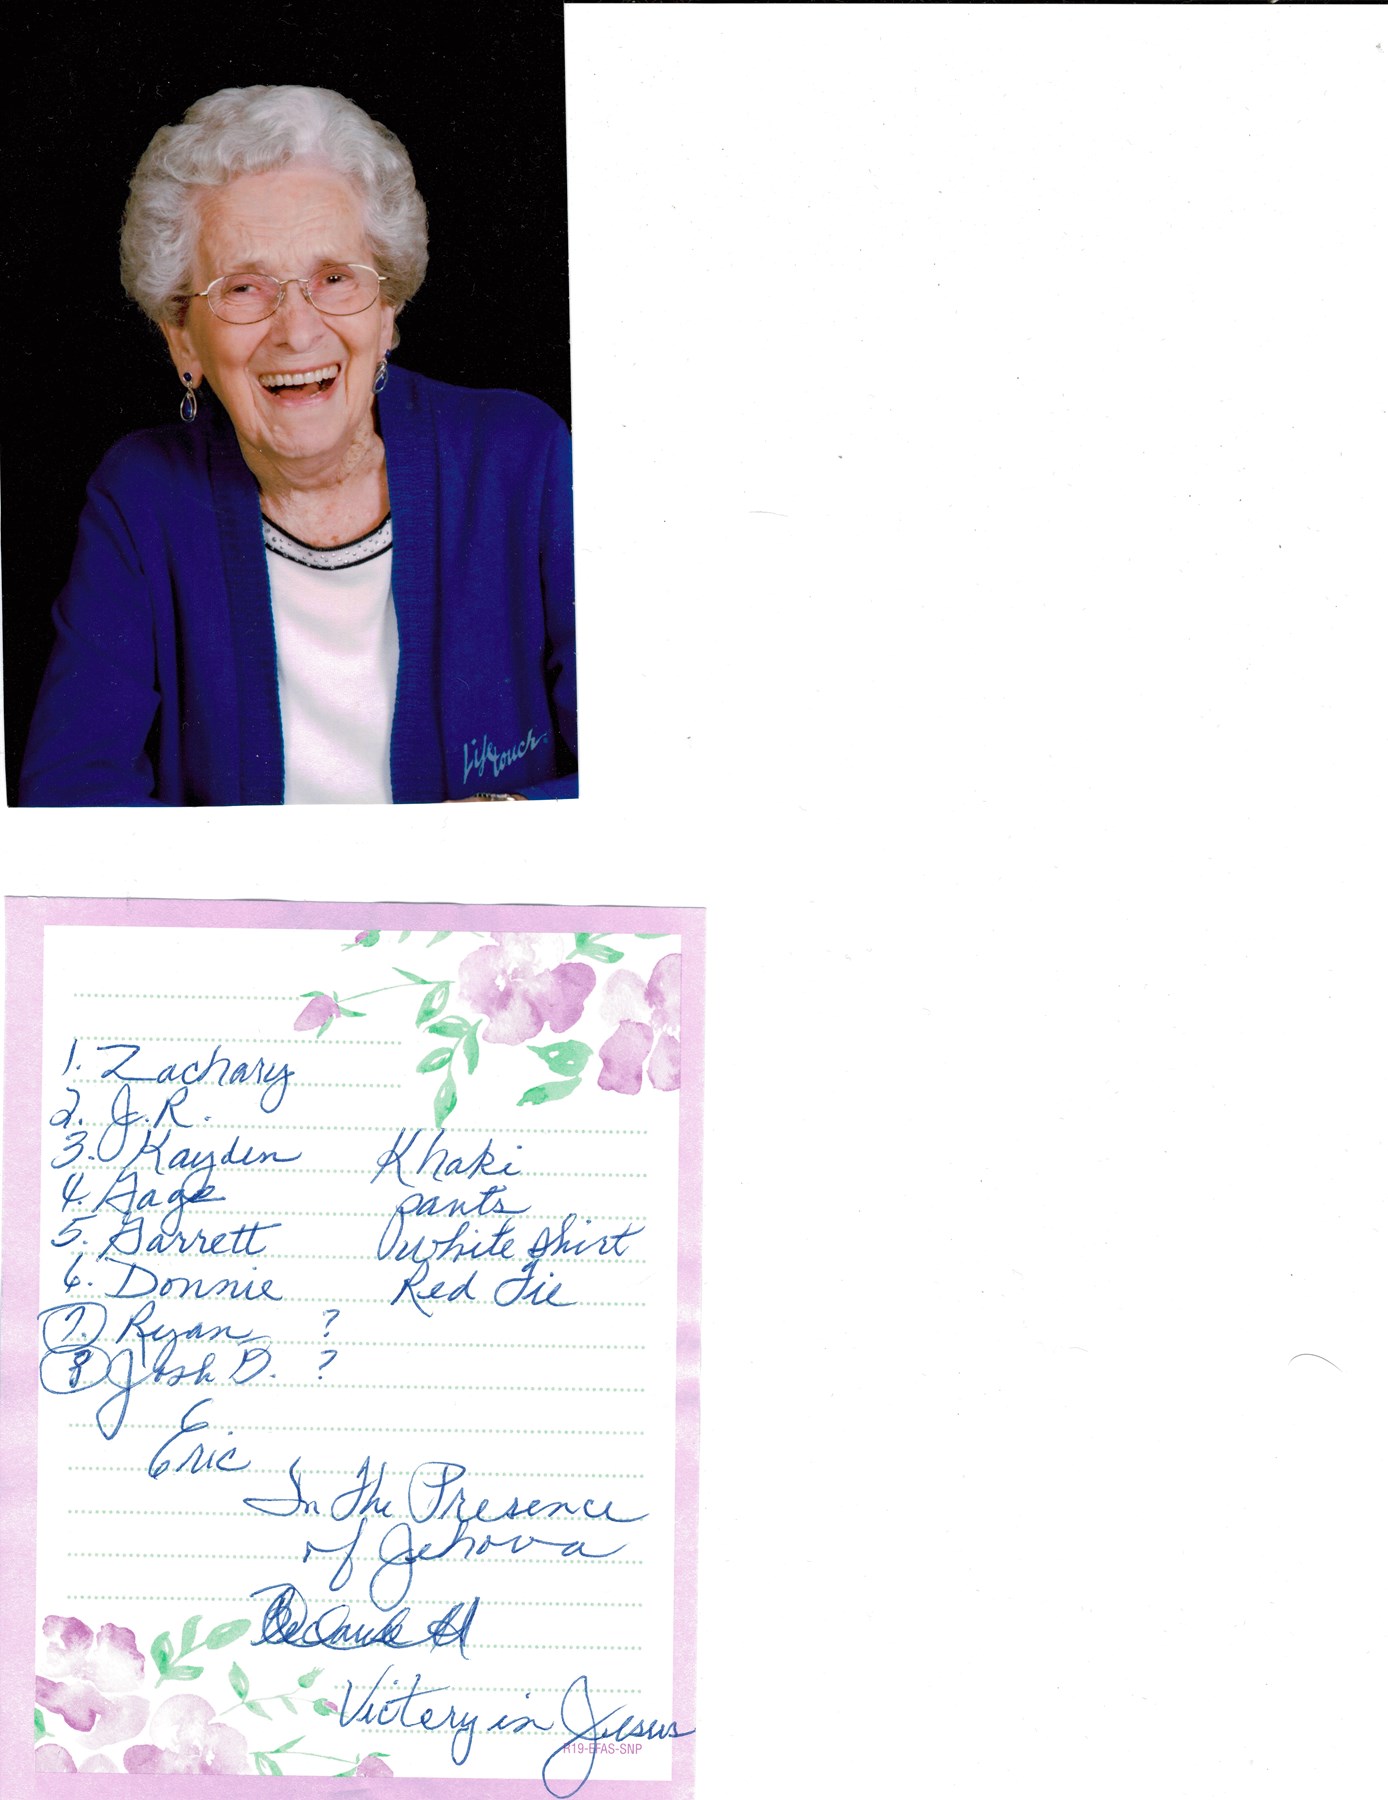 Lifetouch.
1. Zachary
2. J.R.
3. Kayden
4. Gage
5. Garrett
6. Donnie
7. Ryan ?
8 Josh D. ?
Khaki
pants
white shirt
Red Tie
Eric
In The Presence
of Jehova
Victory in Jesus
R19-EFAS-SNP